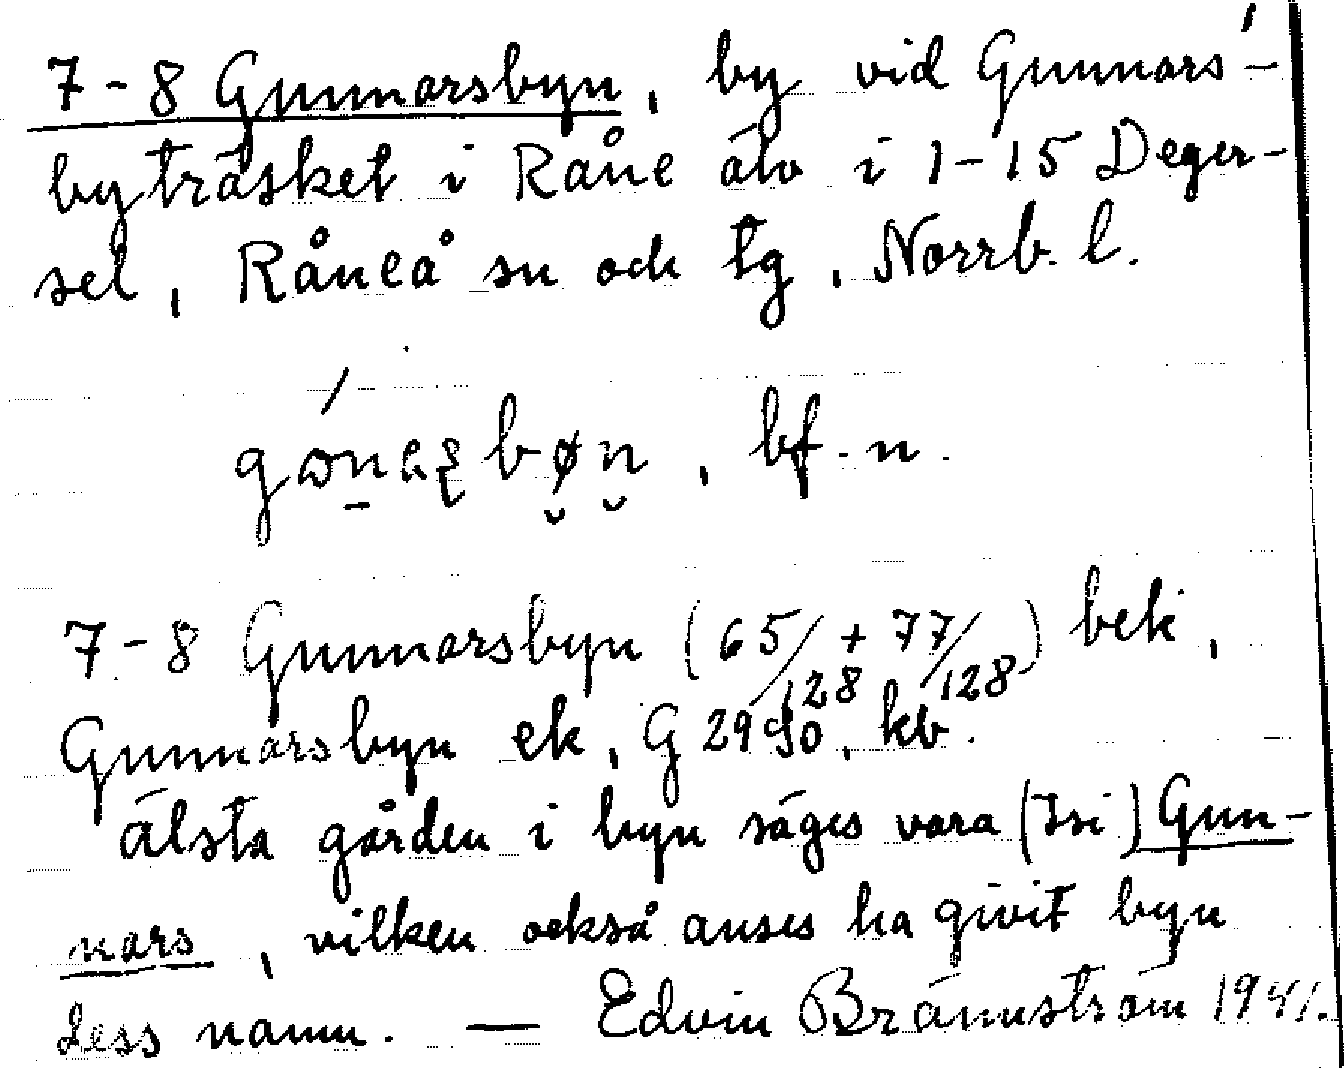 7-8 Gunnarsbyn, by vid Gunnars-
byträsket i Råne älv i 1-15 Deger-
sel, Råneå sn och tg, Norrb. l.
bf. n.
7-8 Gunnarsbyn (65/128 + 77/128) bek,
Gunnarsbyn ek, G 2990, kb.
älsta gården i byn säges vara (Isi) Gun-
nars, vilken också anses ha givit byn
dess namn. — Edvin Brännström 1941.